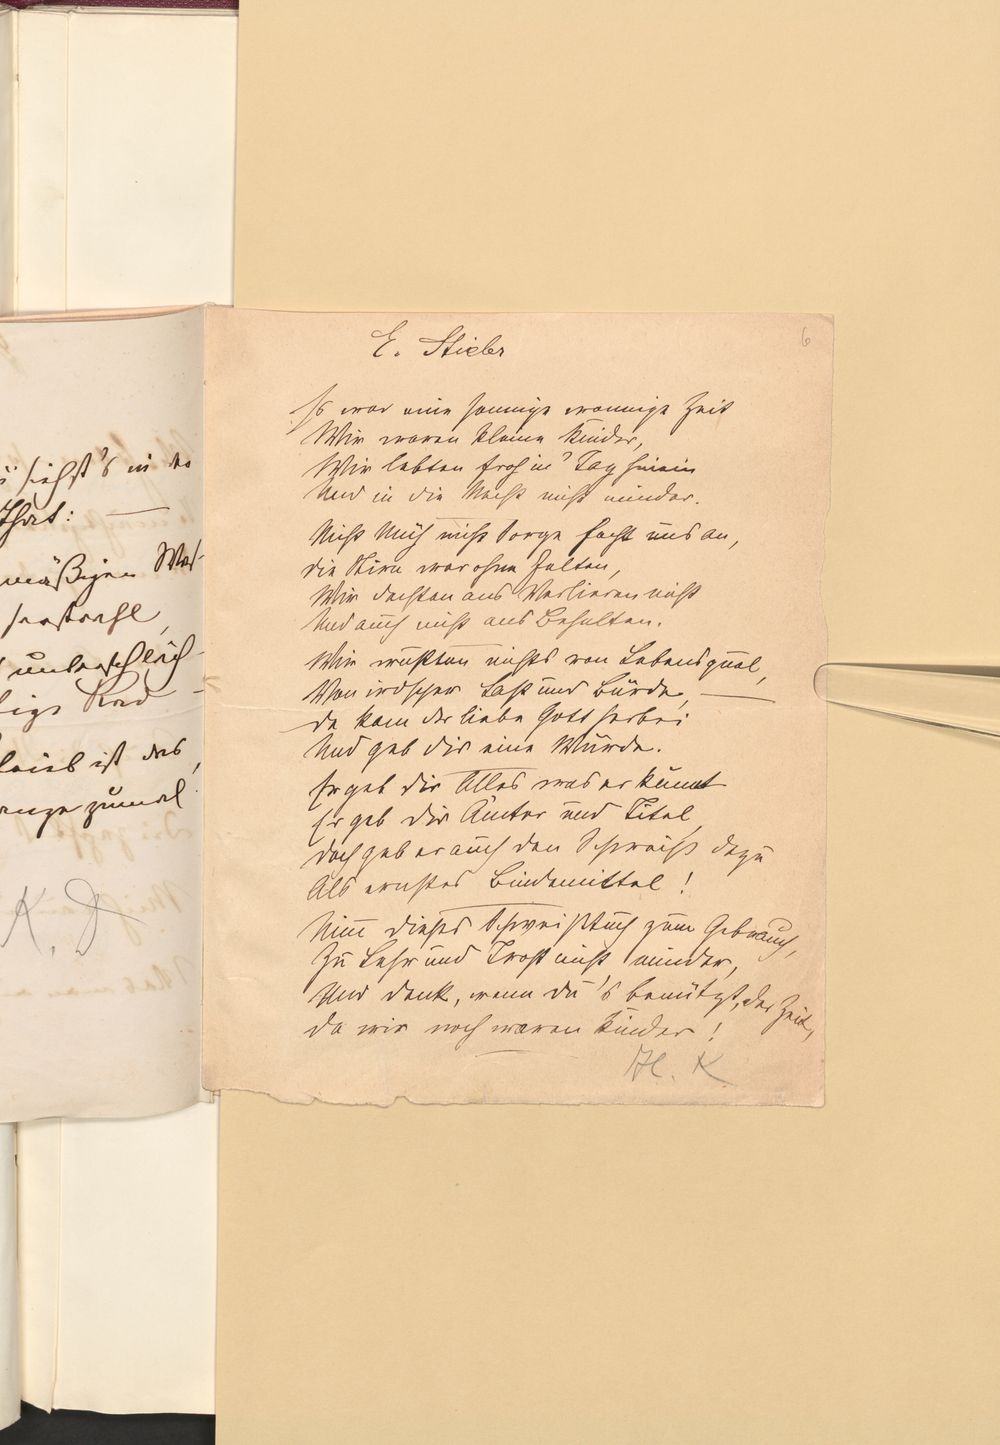 ü siehst's in der
That: —
mäßigen Was-
serstrahl,
unterschläch-
tiges Rad -
bleib ist das,
zumal
K. D
6
E. Stieler
Es war eine sonnige wonnige Zeit
Wir waren kleine Kinder,
Wir lebten froh in's Tag hinein
Und in die Nacht nicht minder.
Nicht Müh nicht Sorge focht uns an,
die Stirn war ohne Falten,
Wir dachten ans Verlieren nicht
Und auch nicht ans Behalten.
Wir wußten nichts von Lebensqual,
Von irdscher Last und Bürde, —
da kam der liebe Gott herbei
Und gab dir eine Würde.
Er gab dir Alles was er kunnt
Er gab dir Ämter und Titel
doch gab er auch den Schweiß dazu
Als ernstes Bindemittel!
Nimm dieses Schweißtuch zum Gebrauch,
Zu Lehr und Trost nicht minder,
Und denk, wenn du's benützt, der Zeit,
da wir noch waren Kinder!
H. K